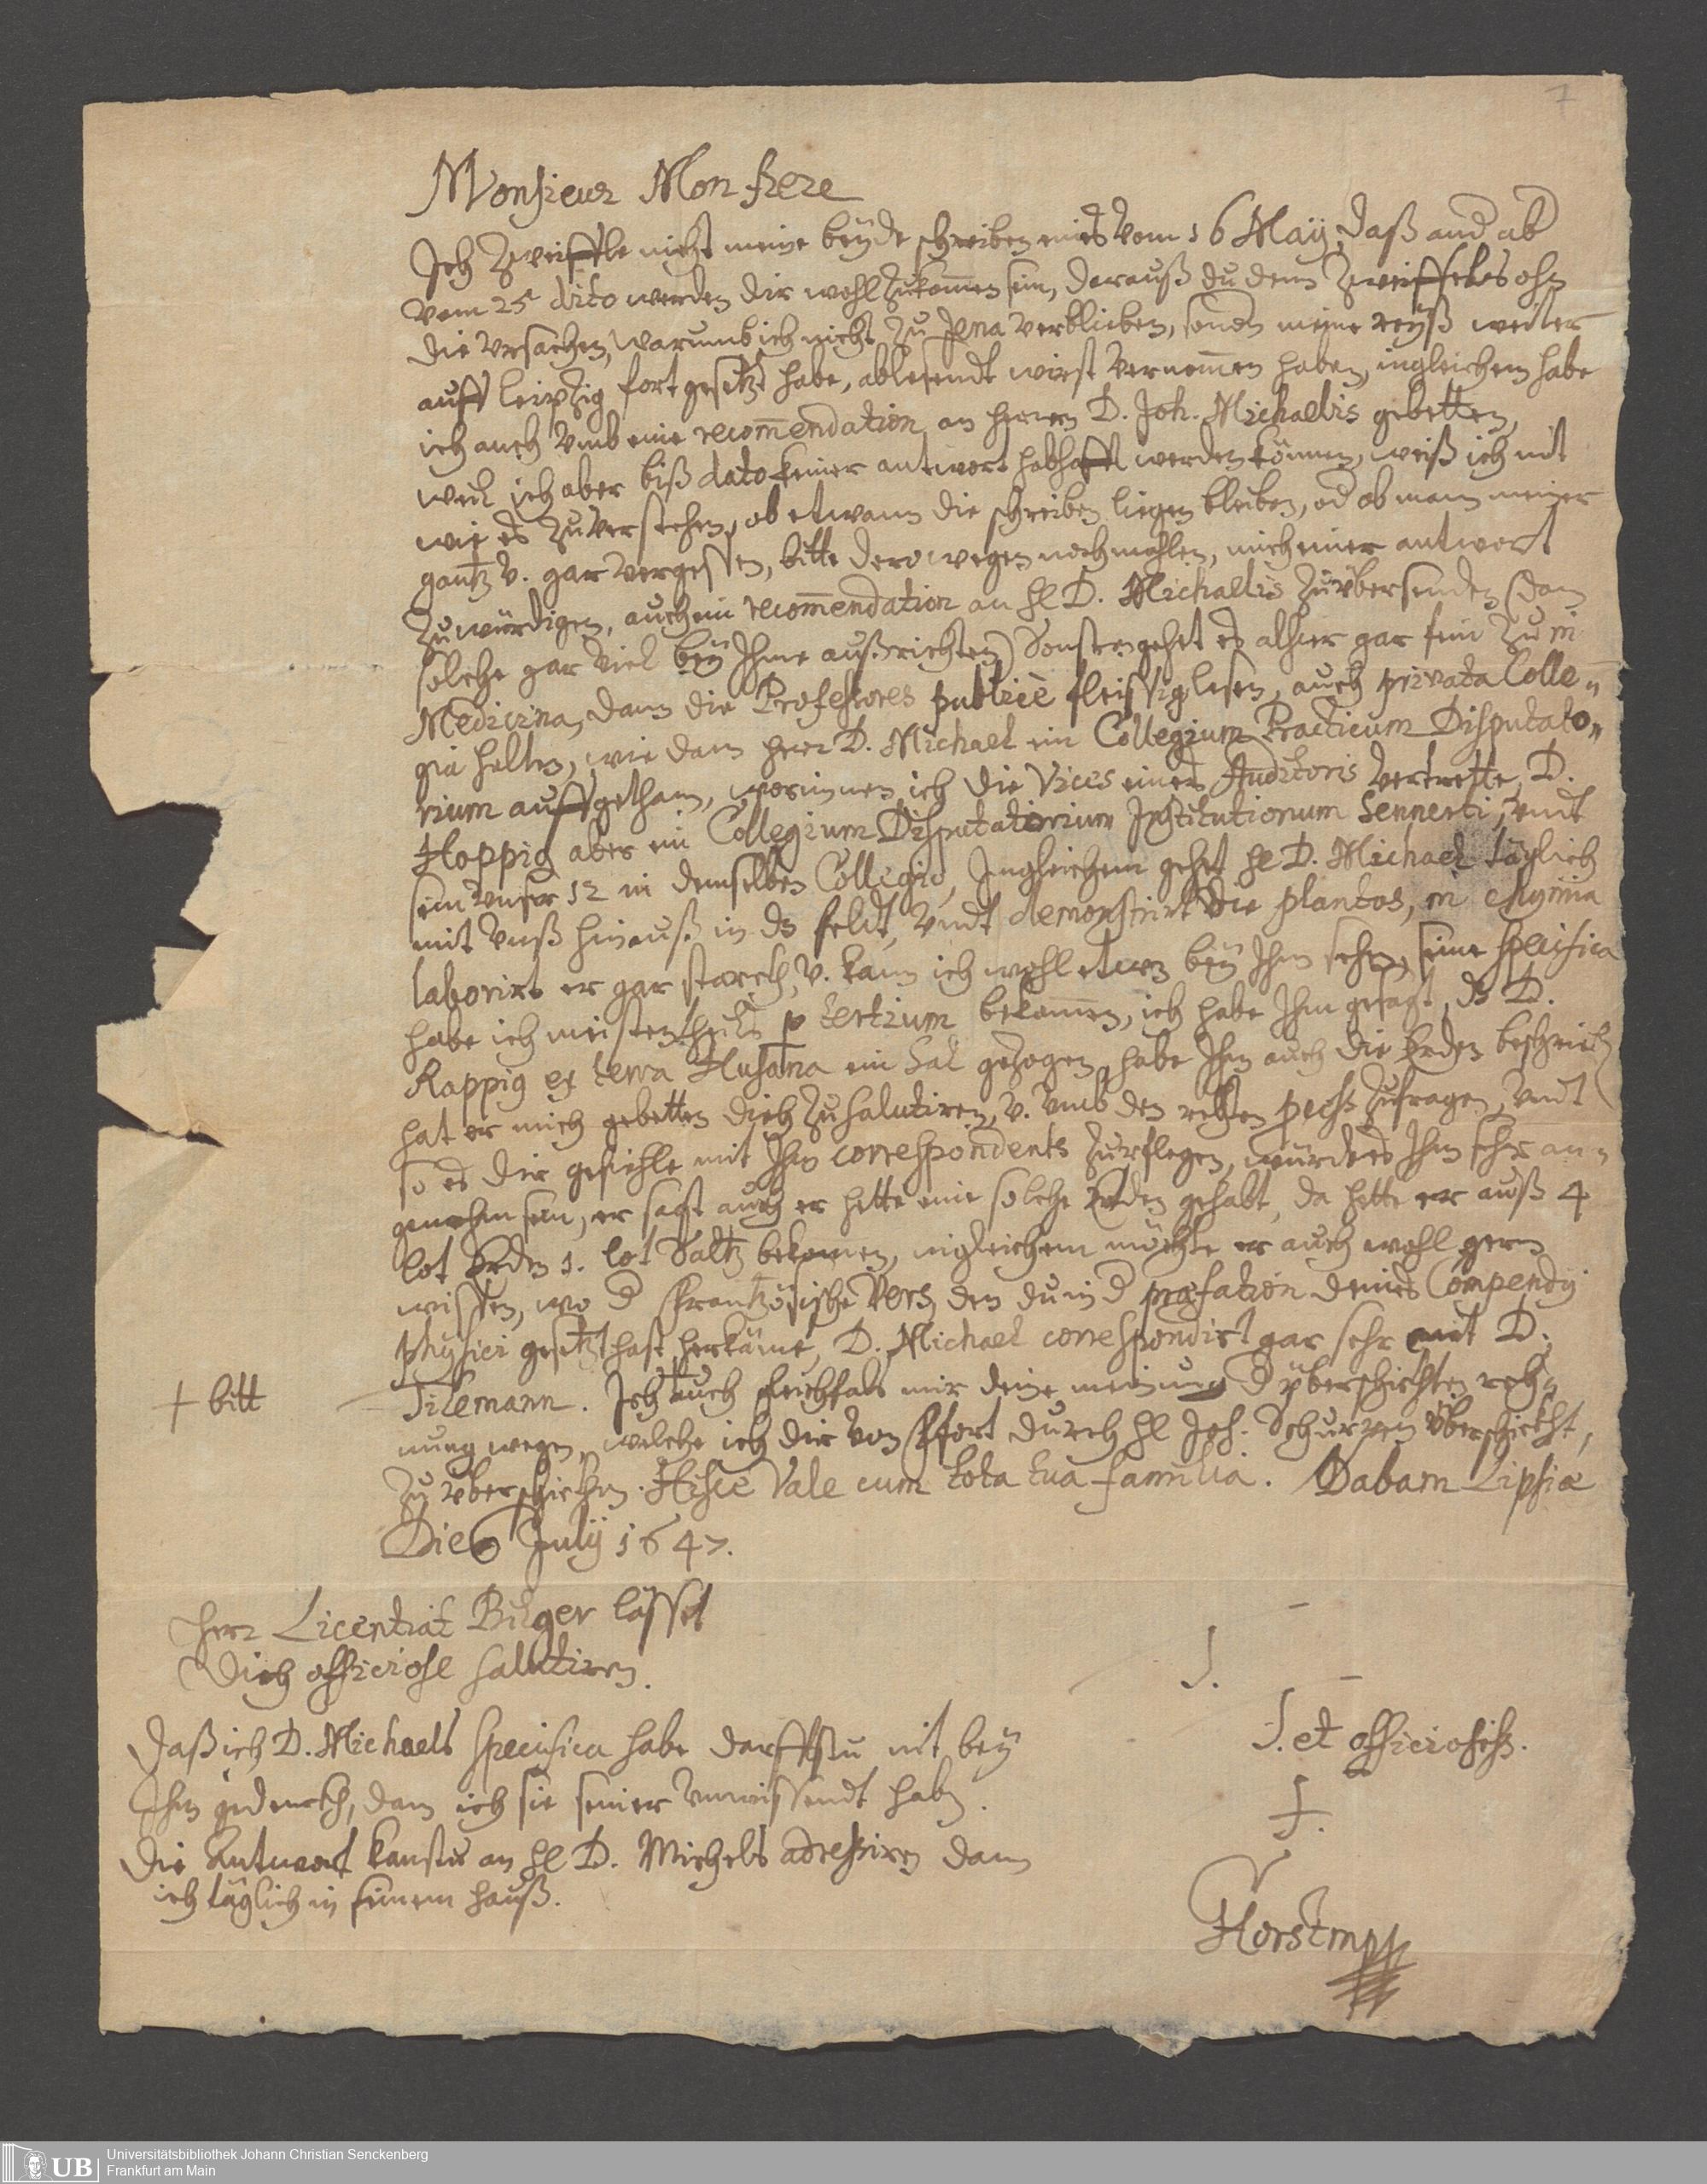 7
Monsieur Mon frere
Ich Zweiffle nicht meine beÿde schreiben eines vom 16 Maÿ, daß and ab
vom 25t dito werden dir wohl Zukom̄en sein, darauß du dem Zweiffels ohn
die Ursachen, warumb ich nicht Zu Jena verblieben, sondn meine reÿß weiter
auff Leipzig fortgesetzt habe, ablesendt wirst vernom̄en haben, ingleichem habe
ich auch umb eine recom̄endation an herren D. Joh. Michaelis gebetten,
weil ich aber biß dato keiner antwort habhafft werden können, weiß ich nit
wie es Zuverstehen, ob etwann die schreiben liegen bleiben, od ob mann meiner
gantz v. gar vergessen, bitte derowegen nochmahlen, mich einer antwort
Zuwürdigen, auch ein recom̄endation an hl D. Michaelis Zuübersenden (dan
solche gar viel beÿ Ihme außrichten) Sonsten gehet es alhier gar fein Zu in
Medicina, dann die Professores publicè fleissig lesen, auch privata Colle„
gia halten, wie dann herr D. Michael ein Collegium Practicum Disputato„
rium auffgethan, worinnen ich die Vices eines Auditoris vertrette, D.
Hoppig aber ein Collegium Disputatorium Institutionum Sennerti, undt
sein unser 12 in demselben Collegio, Ingleichem gehet hl D. Michael täglich
mit unß hinauß in ds feldt, undt demonstrirt die plantas, in chymia
laborirt er gar starck, v. kann ich wohl etwz beÿ Ihm sehen, seine specifica
habe ich meistentheils p tertium bekom̄en, ich habe Ihm gesagt, ds D.
Rappig ex terra Husana ein Sal gezogen, habe Ihm auch die Erden beschrieb
hat er mich gebetten dich Zu salutiren, v. umb den rechten process Zufragen, undt
so es dir gefiehle mit Ihm correspondents Zupflegen, würde es Ihm sehr an„
genehm sein, er sagt auch er hette eine solche Erden gehabt, da hette er auß 4
lot Erden 1. lot Saltz bekom̄en, ingleichem möchte er auch wohl gern
wissen, wo d frantzösische Vers, den du in d præfation deines Compendÿ
physici gesetzt hast herkäme, D. Michael correspondirt gar sehr mit D.
+ bitt
Tilemann. Ich auch gleichfals mir deine meinung d überschickten rech„
nung wegen, welche ich dir von Effort durch hl Joh. Schurzen überschickt,
Zu überschicken. Hisce Vale cum tota tua familia. Dabam Lipsiæ
Die 6 Julÿ 1647.
Herr Licentiat Bilger lässet
Dich officiose salutiren.
Daß ich D. Michaels specifica habe darffstu nit beÿ
Ihm gedencken, dann ich sie seiner unwissendt habe.
Die Antwort kanstu an hl D. Michels adressiren dann
ich täglich in seinem hauß.
T.
T. et officiosiss.
f.
Horst mpp
UB Universitätsbibliothek Johann Christian Senckenberg
Frankfurt am Main